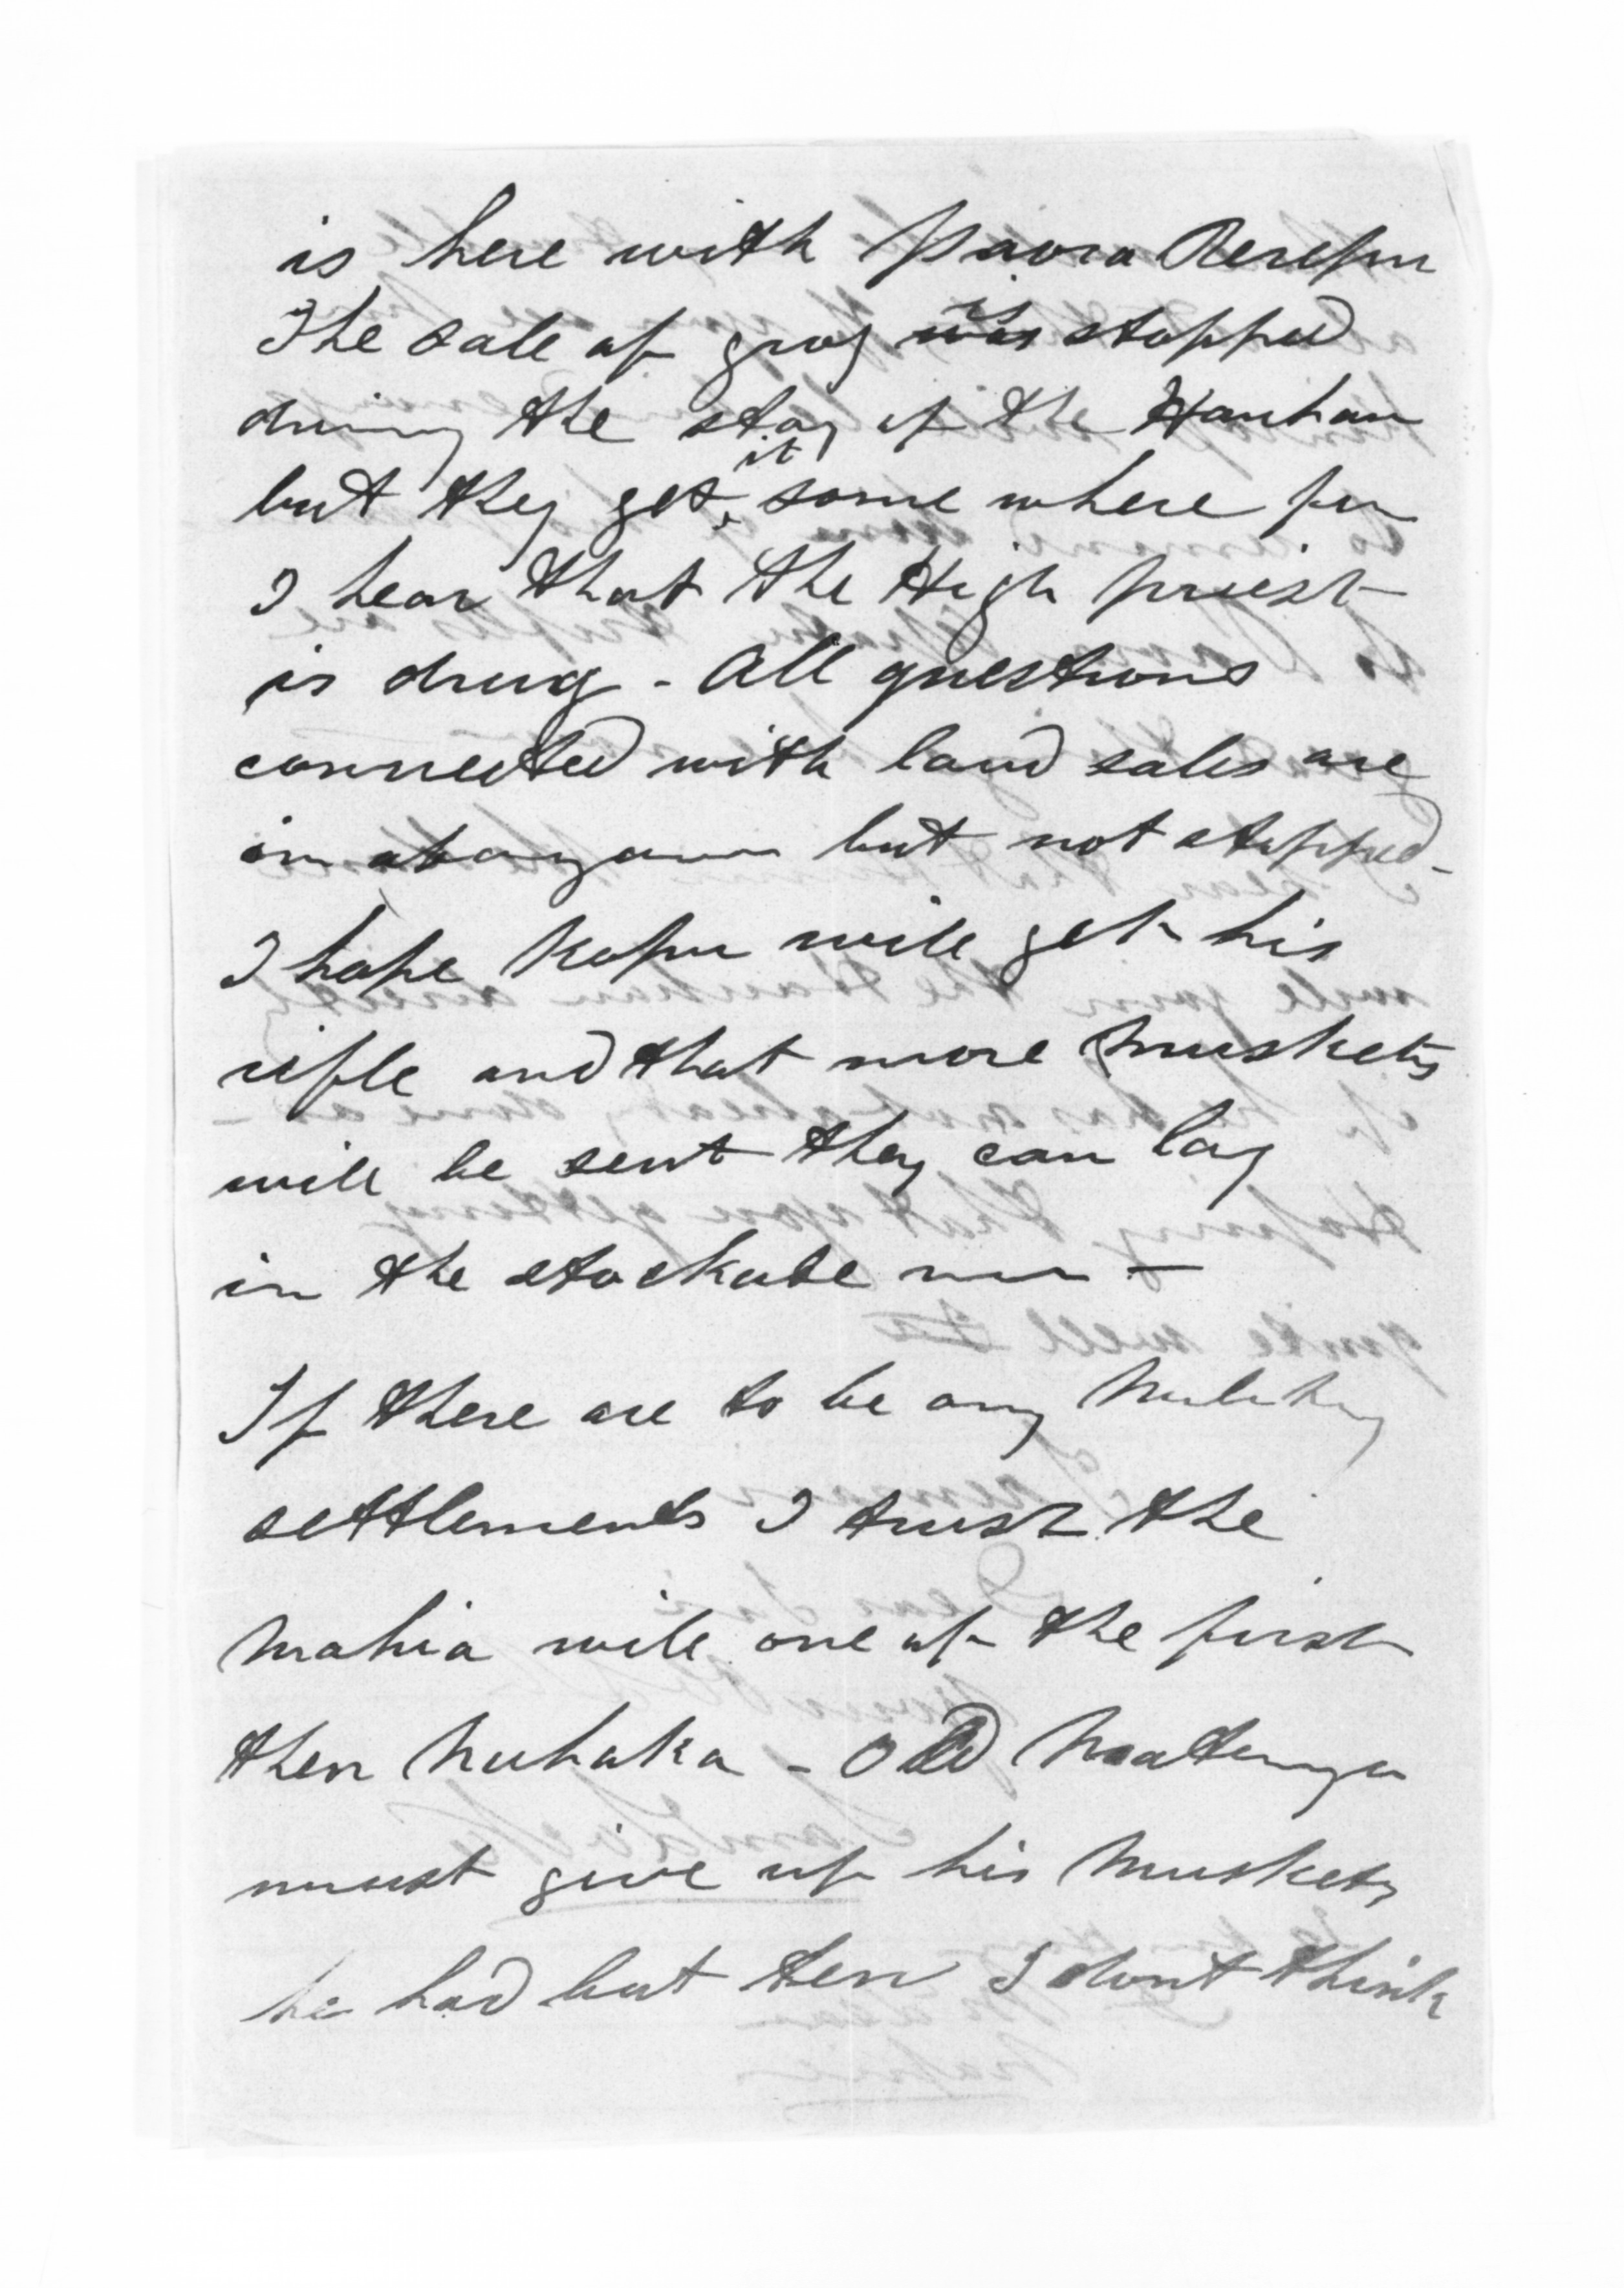 is here with Paora Rerepu
The sale of grog ~~was~~ is stopped
during the stay of the Hauhau
but they get it some where for
I hear that the High priest
is drung - All questions
connected with land sales are
in abeyance but not stopped -
I hope Kopu will get his
rifle and that more muskets
will be sent they can lay
in the stockade
If there are to be any Military
settlements I trust the
Mahia will one of the first
then Nuhaka - Old Matenga
must give up his muskets
he had but ten I dont think